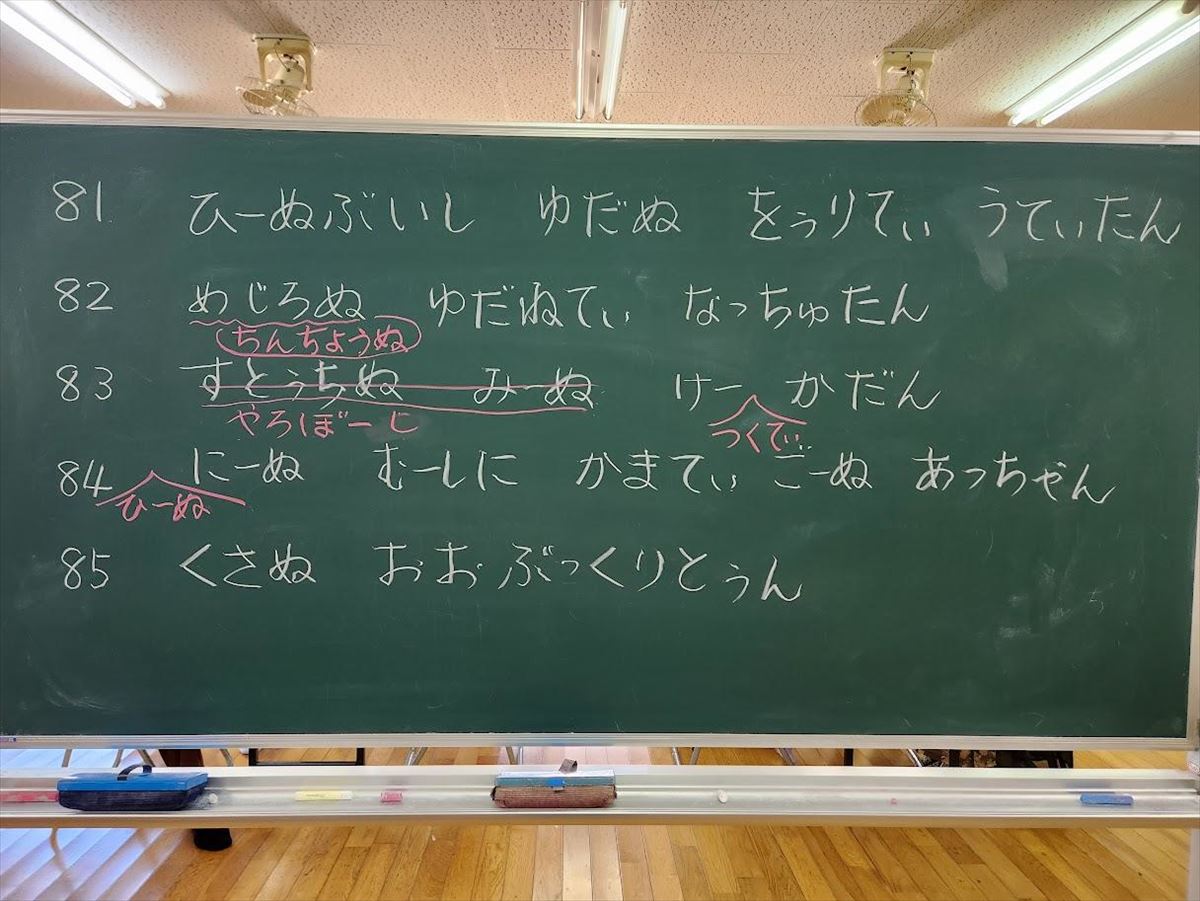 81 ひーぬぶいし ゆだぬ をぅりてぃ うてぃたん
82 めじろぬ ゆだねてぃ なっちゅたん
ちんちょうぬ
83 すとぅちぬ みーぬ けー かだん
やろぼーじ つくてぃ
84 にーぬ むーしに かまてぃ ごーぬ あっちゃん
ひーぬ
85 くさぬ おおぶっくりとぅん